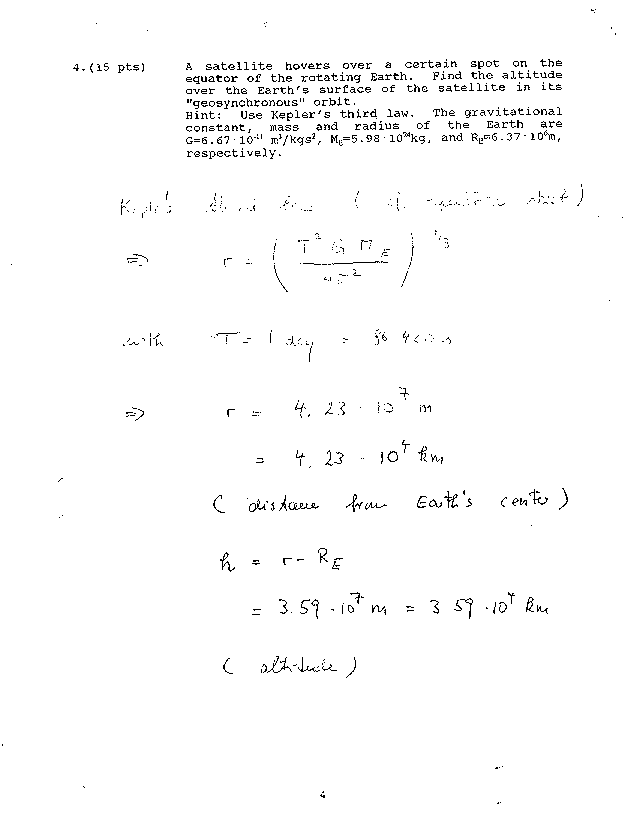 4.(15 pts) A satellite hovers over a certain spot on the
equator of the rotating Earth. Find the altitude
over the Earth's surface of the satellite in its
"geosynchronous" orbit.
Hint: Use Kepler's third law. The gravitational
constant, mass and radius of the Earth are
G=6.67·10⁻¹¹ m³/kgs², M_E=5.98·10²⁴kg, and R_E=6.37·10⁶m,
respectively.
Kepler's third law ( cf. equation sheet )
⇒ r = ( T² G M_E / 4π² )^1/3
with T = 1 day = 86 400 s
⇒ r = 4.23 · 10⁷ m
= 4.23 · 10⁴ km
( distance from Earth's center )
h = r - R_E
= 3.59 · 10⁷ m = 3 59 · 10⁴ km
( altitude )
4